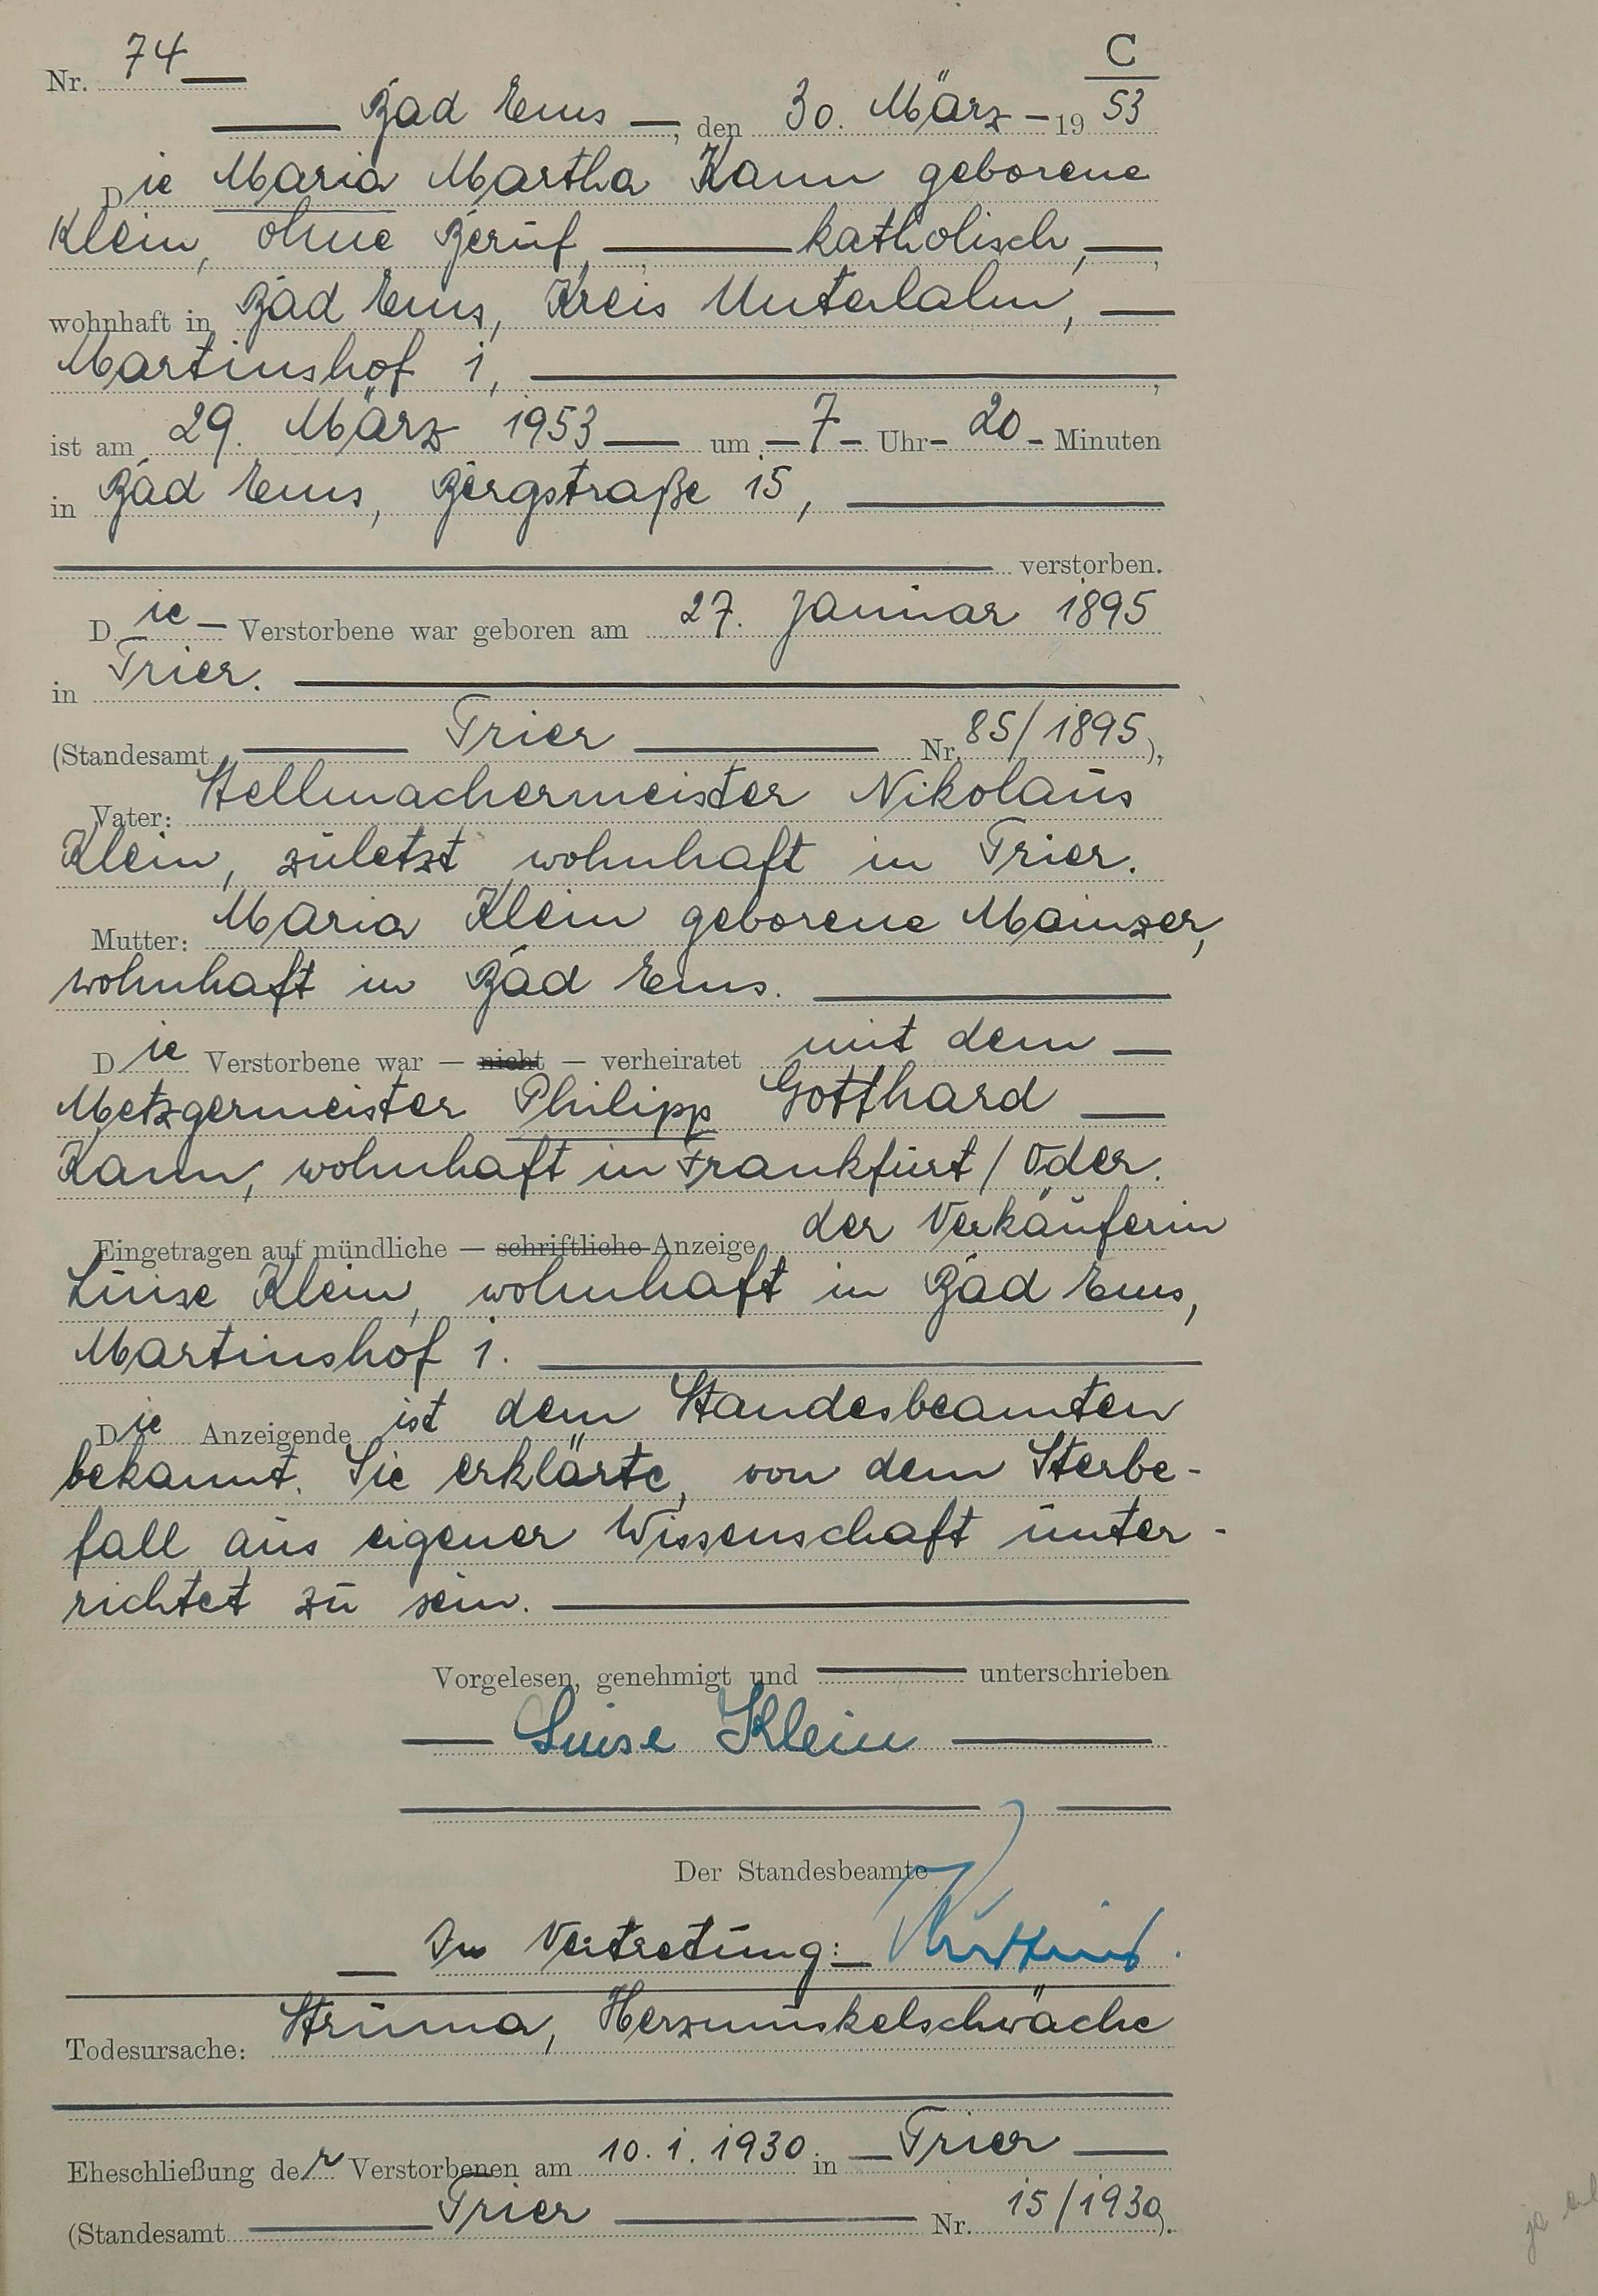 Nr. 74 C
Bad Ems, den 30. März 19 53
Die Maria Martha Kann geborene
Klein, ohne Beruf, katholisch,
wohnhaft in Bad Ems, Kreis Unterlahn,
Martinshof 1,
ist am 29. März 1953 um 7 Uhr 20 Minuten
in Bad Ems, Bergstraße 15,
verstorben.
Die Verstorbene war geboren am 27. Januar 1895
in Trier.
(Standesamt Trier Nr. 85/1895),
Vater: Stellmachermeister Nikolaus
Klein, zuletzt wohnhaft in Trier.
Mutter: Maria Klein geborene Mainzer,
wohnhaft in Bad Ems.
Die Verstorbene war — nicht — verheiratet mit dem
Metzgermeister Philipp Gotthard
Kann, wohnhaft in Frankfurt / Oder.
Eingetragen auf mündliche — schriftliche Anzeige der Verkäuferin
Luise Klein, wohnhaft in Bad Ems,
Martinshof 1.
Die Anzeigende ist dem Standesbeamten
bekannt. Sie erklärte, von dem Sterbe-
fall aus eigener Wissenschaft unter-
richtet zu sein.
Vorgelesen, genehmigt und unterschrieben
Luise Klein
Der Standesbeamte
In Vertretung:
Todesursache: Struma, Herzmuskelschwäche
Eheschließung der Verstorbenen am 10.1.1930 in Trier
(Standesamt Trier Nr. 15/1930).